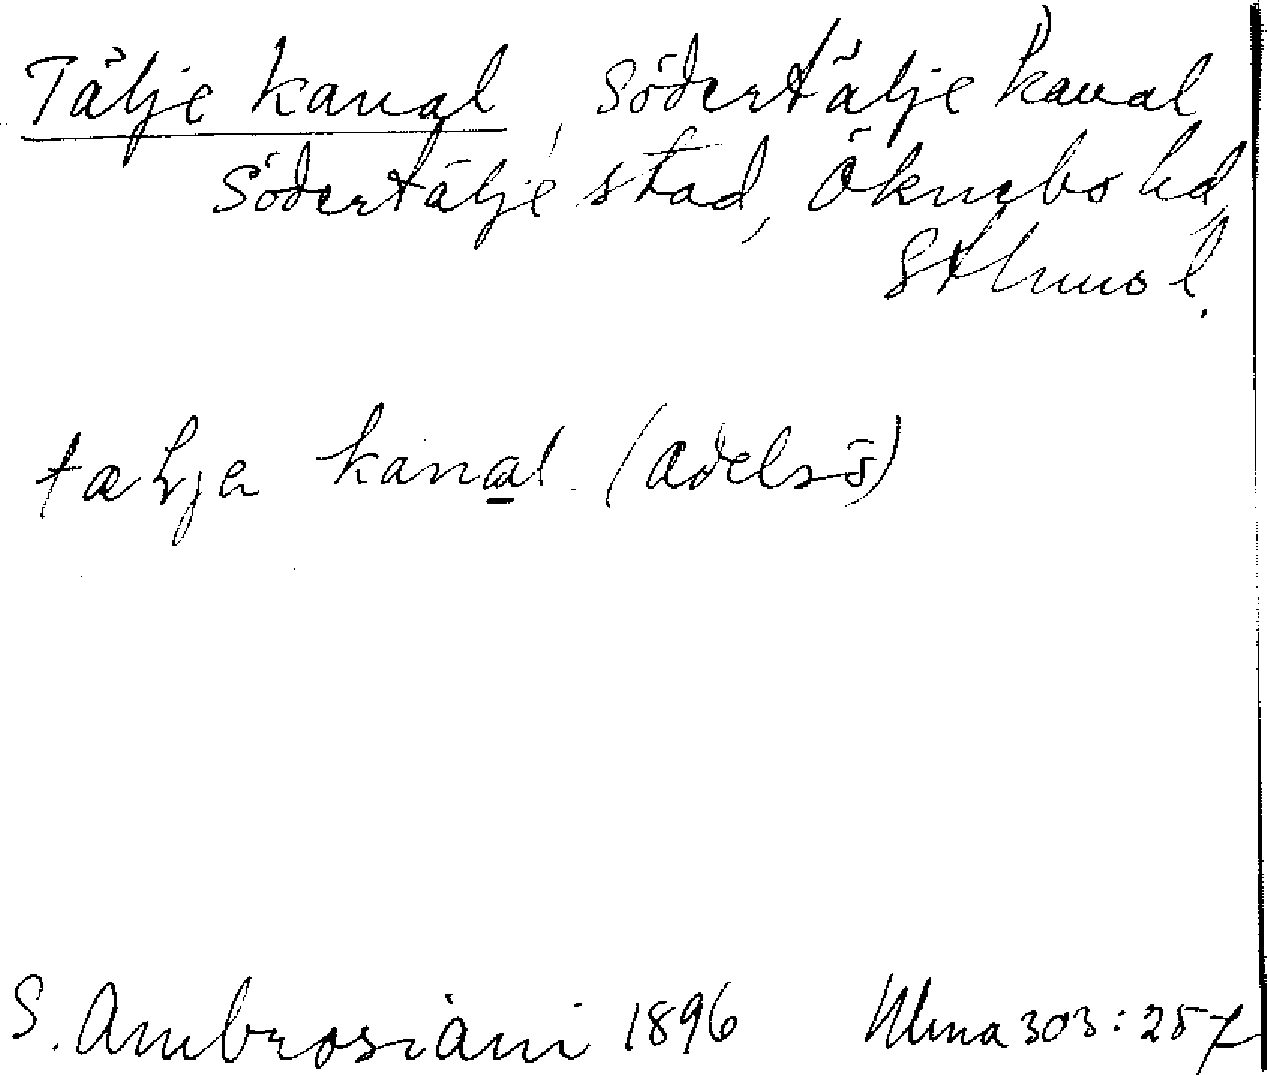 Tälje kanal, Södertälje kanal
Södertälje stad, Öknebo hd,
Sthms l.
kanal (Adelsö)
S. Ambrosiani 1896 Ulma 303:257